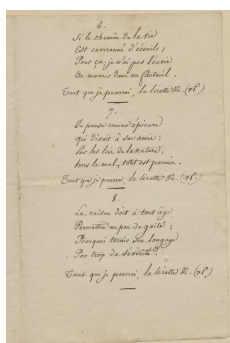 6.
Si le chemin de la vie
Est environné d'écueils;
Pour ça je n'ai pas l'envie
De mourir dans un fauteuil.
Tant que je pourrai, la lirette &c. (bis)
7.
Je pense comme Epicure
qui disait à son amie:
Par les lois de la Nature,
hors le mal, tout est permis.
Tant que je pourrai, la lirette &c. (bis)
8.
La raison doit à tout âge
Permettre un peu de gaité;
Pourquoi ternir son langage
Par trop de Sévérité?
Tant que je pourrai, la lirette &c. (bis)